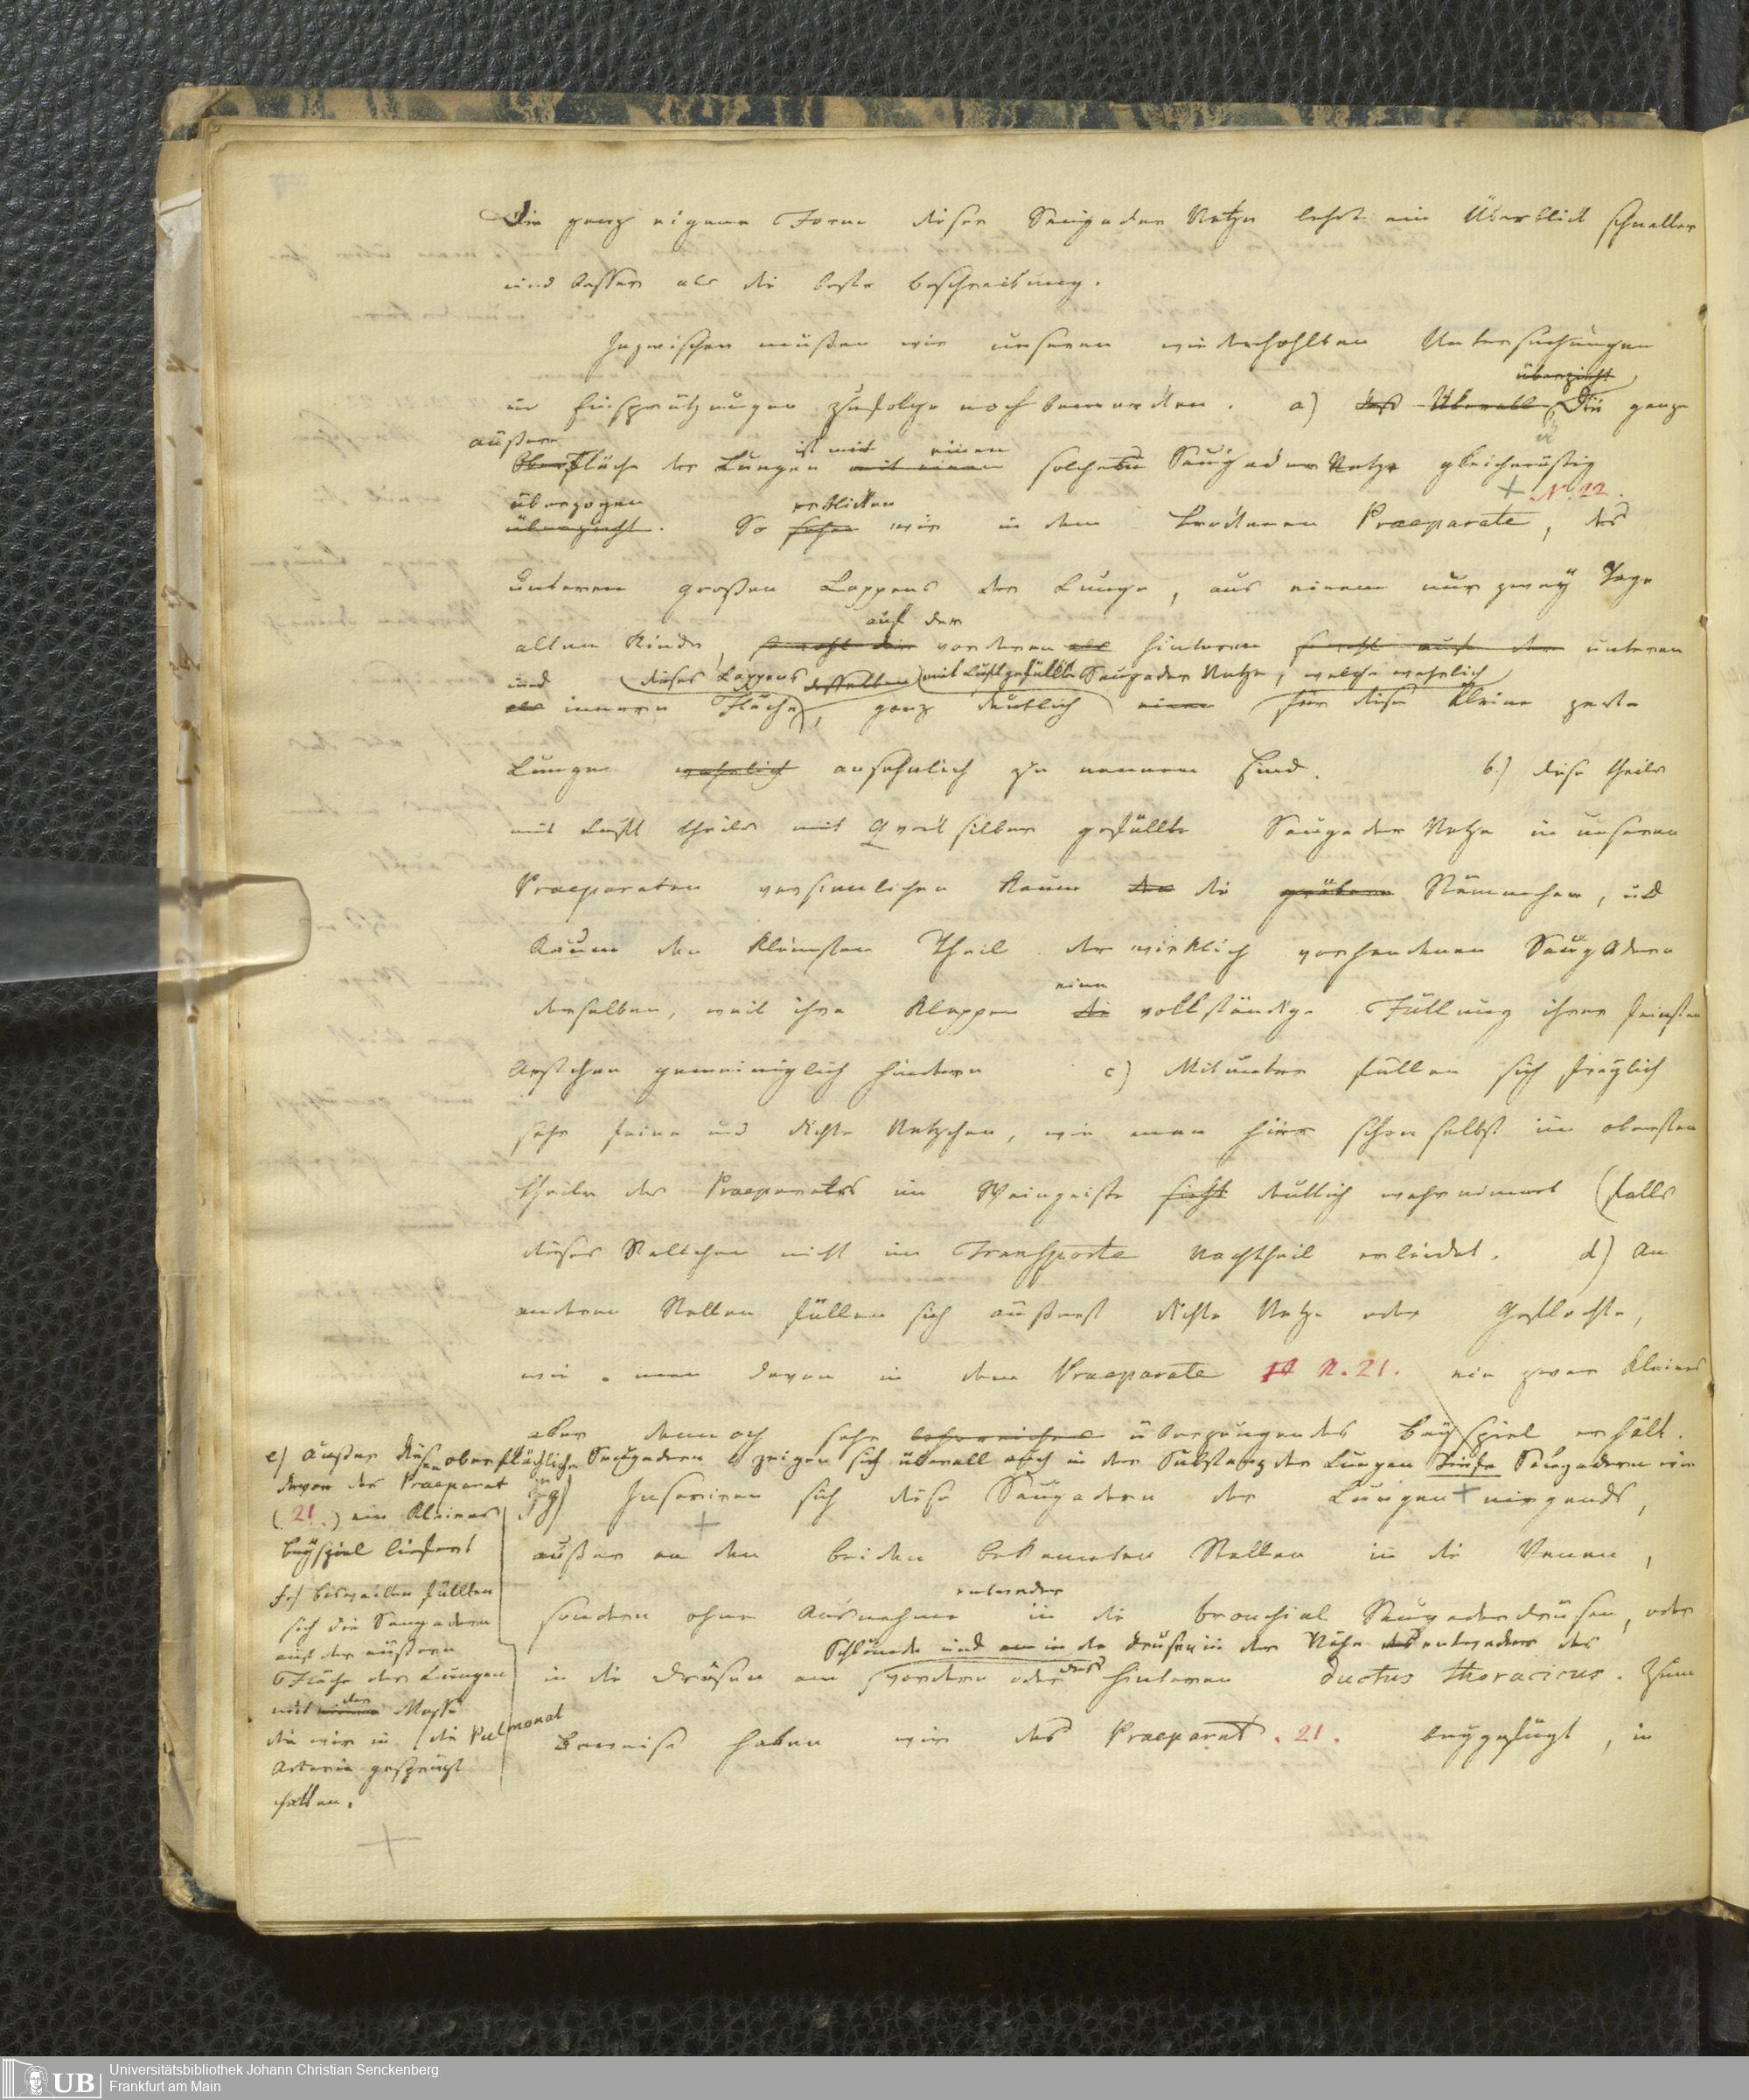 Die ganz eigene Form dieser Saugader Netze lehrt ein Überblick schneller
und besser als die beste Beschreibung.
Inzwischen müßen wir unseren wiederhohlten Untersuchungen
überzieht
u Einsprützungen zufolge noch bemerken. a) daß Überall Die ganze
äußere ist mit einem
Oberfläche der Lungen mit einem solchen Saugader Netze gleichmäßig
+ N. 22.
überzogen erblicken
überzieht. So sehen wir in dem trockenen Praeparate, des
unteren großen Lappens der Lunge, aus einem nur zwey Tage
auf der
alten Kinde, sowohl die vorderen als hinteren sowohl auf der unteren
und dieses Lappens desselben mit Luft gefüllte Saugader Netze, welche wahrlich
als inneren Fläche, ganz deutlich einen für diese kleine zarte
Lunge wahrlich ansehnlich zu nennen sind. b.) diese theils
mit Luft theils mit Quecksilber gefüllte Saugader Netze in unseren
Praeparaten versinnlichen kaum die gröbern Stämmchen, und
kaum den kleinsten Theil der wirklich vorhandenen Saugadern
eine
derselben, weil ihre Klappen die vollständige Füllung ihrer feinsten
Aestchen gemeiniglich hindern c) Mitunter füllen sich freylich
sehr feine und dichte Netzchen, wie man hier schon selbst im obersten
Theile des Praeparates im Weingeiste sieht deutlich wahrnimmt (falls
dieses Stellchen nicht im Transporte Nachtheil erleidet. d) An
anderen Stellen füllen sich äußerst dichte Netze oder Geflechte,
wie man davon in dem Praeparate N. 21. ein zwar kleines
aber dennoch sehr lehrreiches überzeugendes Beyspiel erhält.
e) Außer diesen oberflächlichen Saugadern zeigen sich überall auch in der Substanz der Lungen tiefe Saugadern wie
davon das Praeparat
(21.) ein kleines
Beyspiel liefert
f.) bisweilen füllten
sich die Saugadern
auf der äußeren
Fläche der Lungen
mit der Masse
die wir in die Pulmonal
Arterie gesprützt
hatten.
+
g) Inseriren sich diese Saugadern der Lungen + nirgends,
+
außer an den beiden bekannten Stellen in die Venen,
entweder
sondern ohne Ausnahme in die bronchial Saugaderdrüsen, oder
Schlunde und in die Drüsen in der Nähe entweder des
in die Drüsen am vordern oder hinteren ductus thoracicus. Zum
Beweise haben wir das Praeparat. 21. beygefügt, in
Universitätsbibliothek Johann Christian Senckenberg
Frankfurt am Main
UB